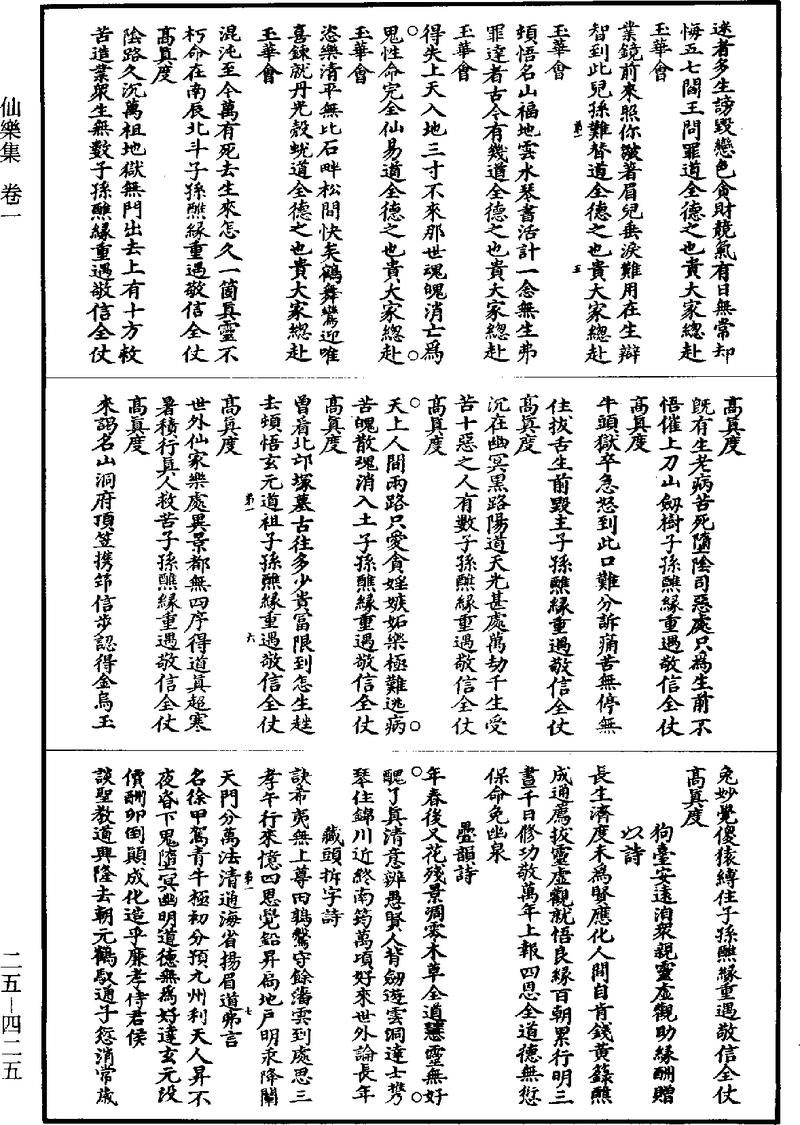 迷者多生謗毀戀色貪財競氣有日無常却
悔五七閻王問罪道全德之也貴大家緫赴
玉華會
業鏡前來照你皺著眉兒垂淚難用在生辯
智到此兒孫難替道全德之也貴大家緫赴
玉華會
頓悟名山福地雲水琴書活計一念無生弗
罪達者古今有幾道全德之也貴大家緫赴
玉華會
得失上天入地三寸不來那世魂魄消亡爲
鬼性命完全仙易道全德之也貴大家緫赴
玉華會
恣樂清平無比石畔松間快矣鶴舞鸞迎唯
喜鍊就丹光殼蛻道全德之也貴大家緫赴
玉華會
混沌至今萬有死去生來怎久一箇真靈不
朽命在南辰北斗子孫醮緣重遇敬信全仗
高真度
陰路久沉萬祖地獄無門出去上有十方救
苦造業衆生無數子孫醮緣重遇敬信全仗
高真度
旣有生老病苦死墮陰司惡處只為生前不
悟催上刀山劔樹子孫醮緣重遇敬信全仗
高真度
牛頭獄卒急怒到此口難分訴痛苦無停無
住拔舌生前毀主子孫醮緣重遇敬信全仗
高真度
沉在幽冥黑路陽道天光甚處萬劫千生受
苦十惡之人有數子孫醮緣重遇敬信全仗
高真度
天上人間兩路只愛貪婬嫉妬樂極難逃病
苦魄散魂消入土子孫醮緣重遇敬信全仗
高真度
曾看北邙塚墓古往多少貴冨限到怎生趓
去頓悟玄元道祖子孫醮緣重遇敬信全仗
高真度
世外仙家樂處異景都無四序得道真超寒
暑積行真人救苦子孫醮緣重遇敬信全仗
高真度
來謁名山洞府頂笠携筇信步認得金烏玉
兔妙覺傻猿縛住子孫醮緣重遇敬信全仗
高真度
狗臺安遠洎衆親靈虛觀助緣酬贈
以詩
長生濟度未為賢應化人間自肯錢黃籙醮
成通薦拔靈虛觀就悟良緣百朝累行明三
晝千日修功敬萬年上報四恩全道德無愆
保命免幽泉
疊韻詩
年春後又花殘景凋零木草全道慧靈無好
醜了真清意辨愚賢人背劔遊雲洞達士攜
琴住錦川近終南筠萬頃好來世外論長年
藏頭拆字詩
訣希夷無上尊田鶉鷇守餘濤雲到處思三
孝午行來憶四恩覺鉛昇扃地戸明汞降闢
天門分萬法清通海省揚眉道弗言
名徐甲駕青牛極初分預九州利天人昇不
夜昏下鬼墮冥幽明道德無為好達玄元設
價酬卯倒顛成化造乎廉孝侍君侯
談聖教道興隆去朝元鶴馭通子愆消常歲
仙樂集 卷一
二五—四二五
第一
五
第一
六
第一
七